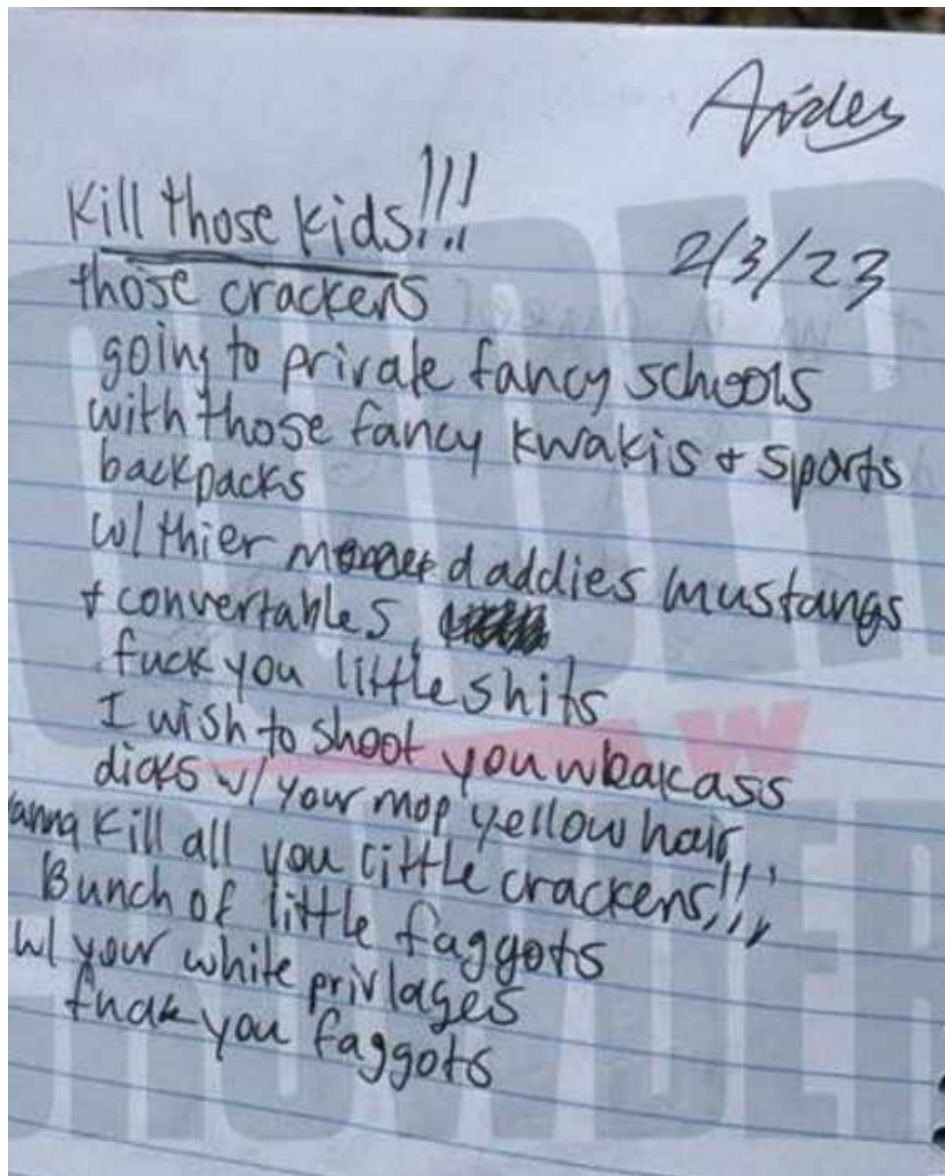 Aiden
Kill those kids!!!
2/3/23
those crackers
going to private fancy schools
with those fancy kwakis + sports
backpacks
w/ thier daddies mustangs
+ convertables
fuck you little shits
I wish to shoot you weakass
dicks w/ your mop yellow hair,,,
anna kill all you little crackers!!!,
Bunch of little faggots
w/ your white privlages
fuck you faggots
CROWDER